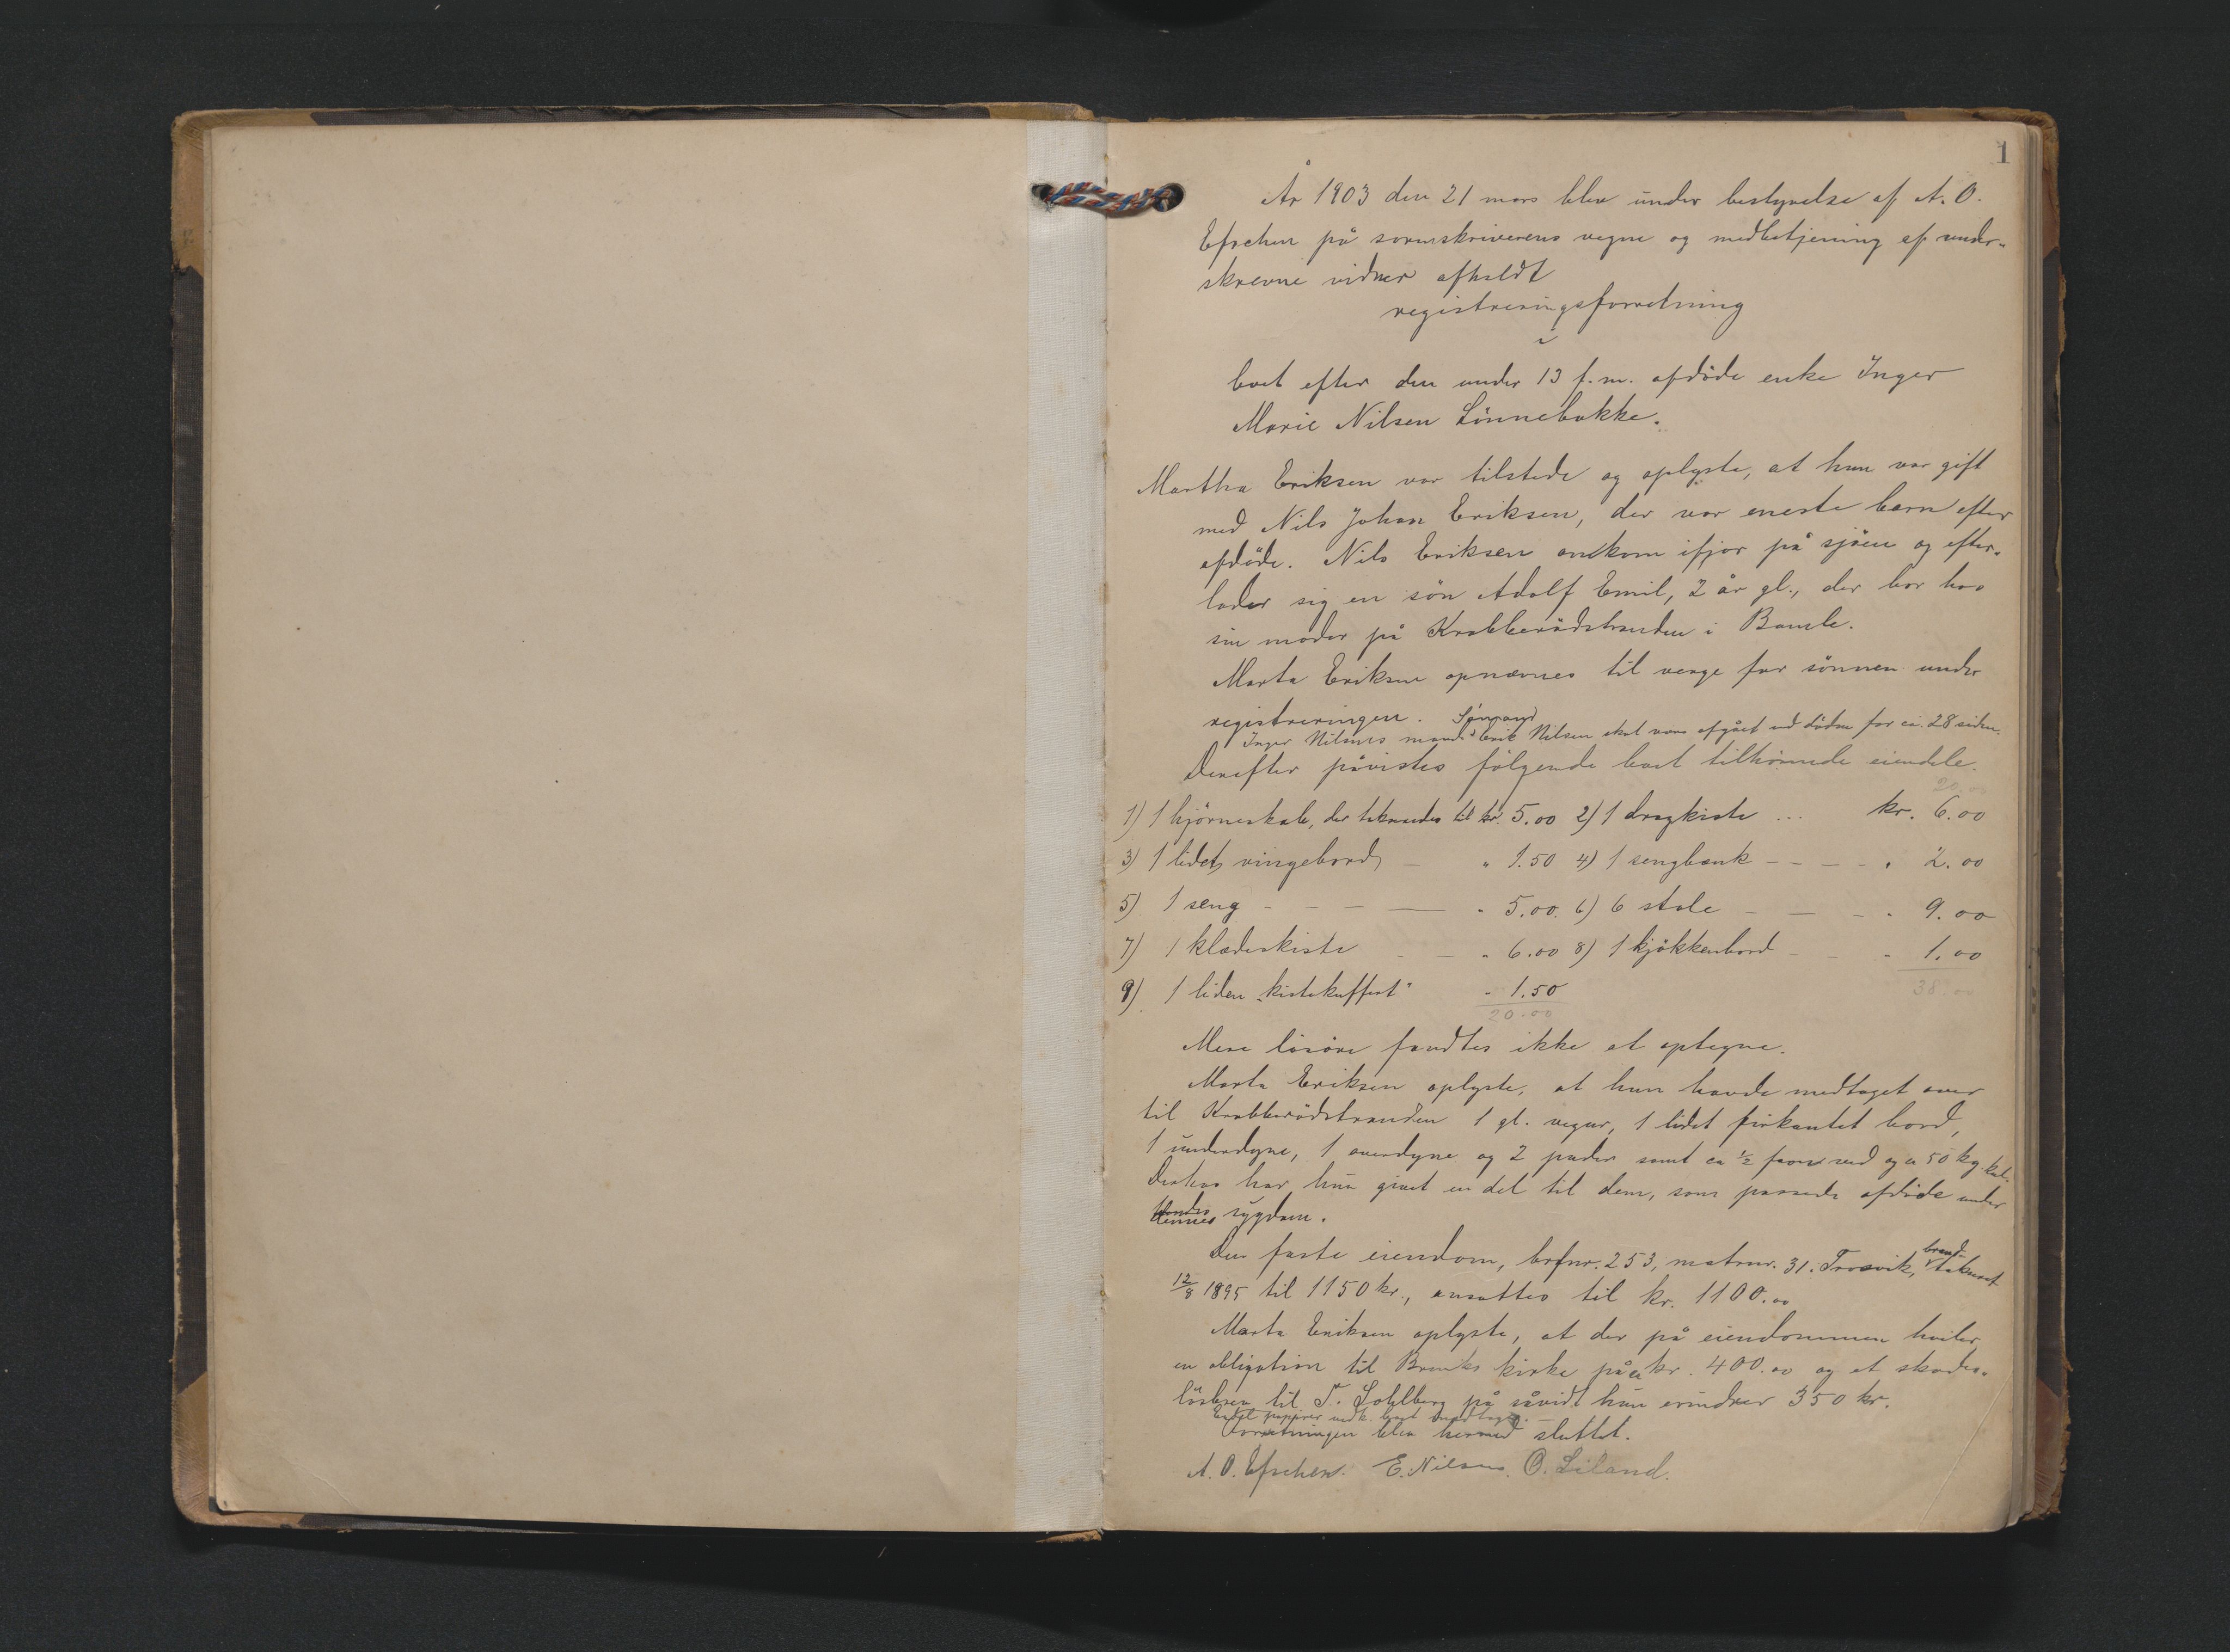 1
År 1903 den 21 mars blev under bestyrelse af A. O.
Efschen på sorenskriverens vegne og medbetjening af under-
skrevne vidner afholdt
registreringsforretning
i
boet efter den under 13 f. m. afdöde enke Inger
Marie Nilsen Lönnebakke.
Martha Eriksen var tilstede og oplyste, at hun var gift
med Nils Johan Eriksen, der var eneste barn efter
afdöde. Nils Eriksen omkom ifjor på sjöen og efter-
lader sig en sön Adolf Emil, 2 år gl., der bor hos
sin moder på Krabberödstranden i Bamle.
Marta Eriksen opnævnes til verge for sönnen under
registreringen. Sömand
Inger Nilsens mand Erik Nilsen skal være afgået ved döden for ca. 28 siden.
Derefter påvistes fölgende boet tilhörende eiendele.
20.00
1) 1 hjörneskab, der takseredes til kr. 5.00 2) 1 dragkiste ... kr. 6.00
3) 1 lidet vingebord - " 1.50 4) 1 sengbænk - - - - " 2.00
5) 1 seng - - - - " 5.00. 6) 6 stole - - - " 9.00
7) 1 klædeskiste - - " 6.00 8) 1 kjökkenbord - - " 1.00
9) 1 liden "kistekuffert" " 1.50 38.00
20.00
Mere lösöre fandtes ikke at optegne.
Marta Eriksen oplyste, at hun havde medtaget over
til Krabberödstranden 1 gl. 1 lidet firkantet bord,
1 underdyne, 1 overdyne og 2 puder samt ca ½ favn ved og ca 50 kg. kul.
Desuden har hun givet en del til dem, som passede afdöde under
hendes sygdom.
Den faste eiendom, brfnr. 253, matrnr. 31. Trosvik, brand-
takseret
12/8 1895 til 1150 kr., ansattes til kr. 1100.00
Marta Eriksen oplyste, at der på eiendommen hviler
en obligation til Breviks kirke på ca kr. 400.00 og et skades-
lösbrev til T. Sohlberg på såvidt hun erindrer 350 kr.
Endel papirer vedk. boet medtages.
Forretningen blev hermed sluttet.
A. O. Efschen. E. Nilsen. O. Liland.